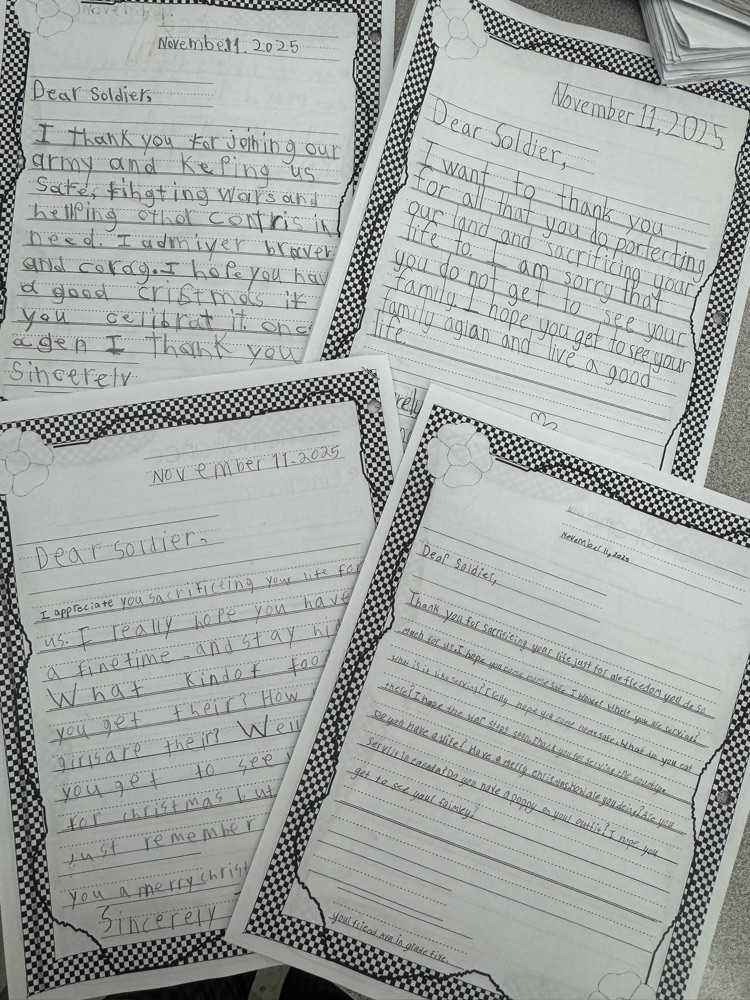 November 11, 2025
Dear Soldier,
I thank you for joining our
army and Keeping us
Safe, fihgting wars and
hellping othor contris in
need. I admiyer braver
and corag. I hope you hav
a good cristmas if
you celibrat it onc
agen I thank you
Sincerely
November 11, 2025
Dear Soldier,
I want to thank you
for all that you do portecting
our land and sacrificing your
life to. I am sorry that
you do not get to see your
family. I hope you get to see your
family agian and live a good
life.
rely
November 11-2025
Dear soldier.
I appreciate you sacrificteing your life for
us. I really hope you have
a fine time and stay
What Kindof foo
you get their? How
girls are their? Well
you get to see
for christmas but
Just remember
you a merry christ
Sincerely
November 11, 2025
Dear Soldier,
Thank you for sacrificing your life just for are freedom you do so
much for us. I hope you come home safe. I Wonder where you are serving?
what is it like serving? I relly hope you come home safe. What do you eat
there? I hope the war stops soon. Thank you for serving
Do you have a wife? Have a merry chrismas are you doing? Are you
Servin in canada? Do you have a poppy on your outfit? I hope you
get to see your faimley!
your friend in grade five.